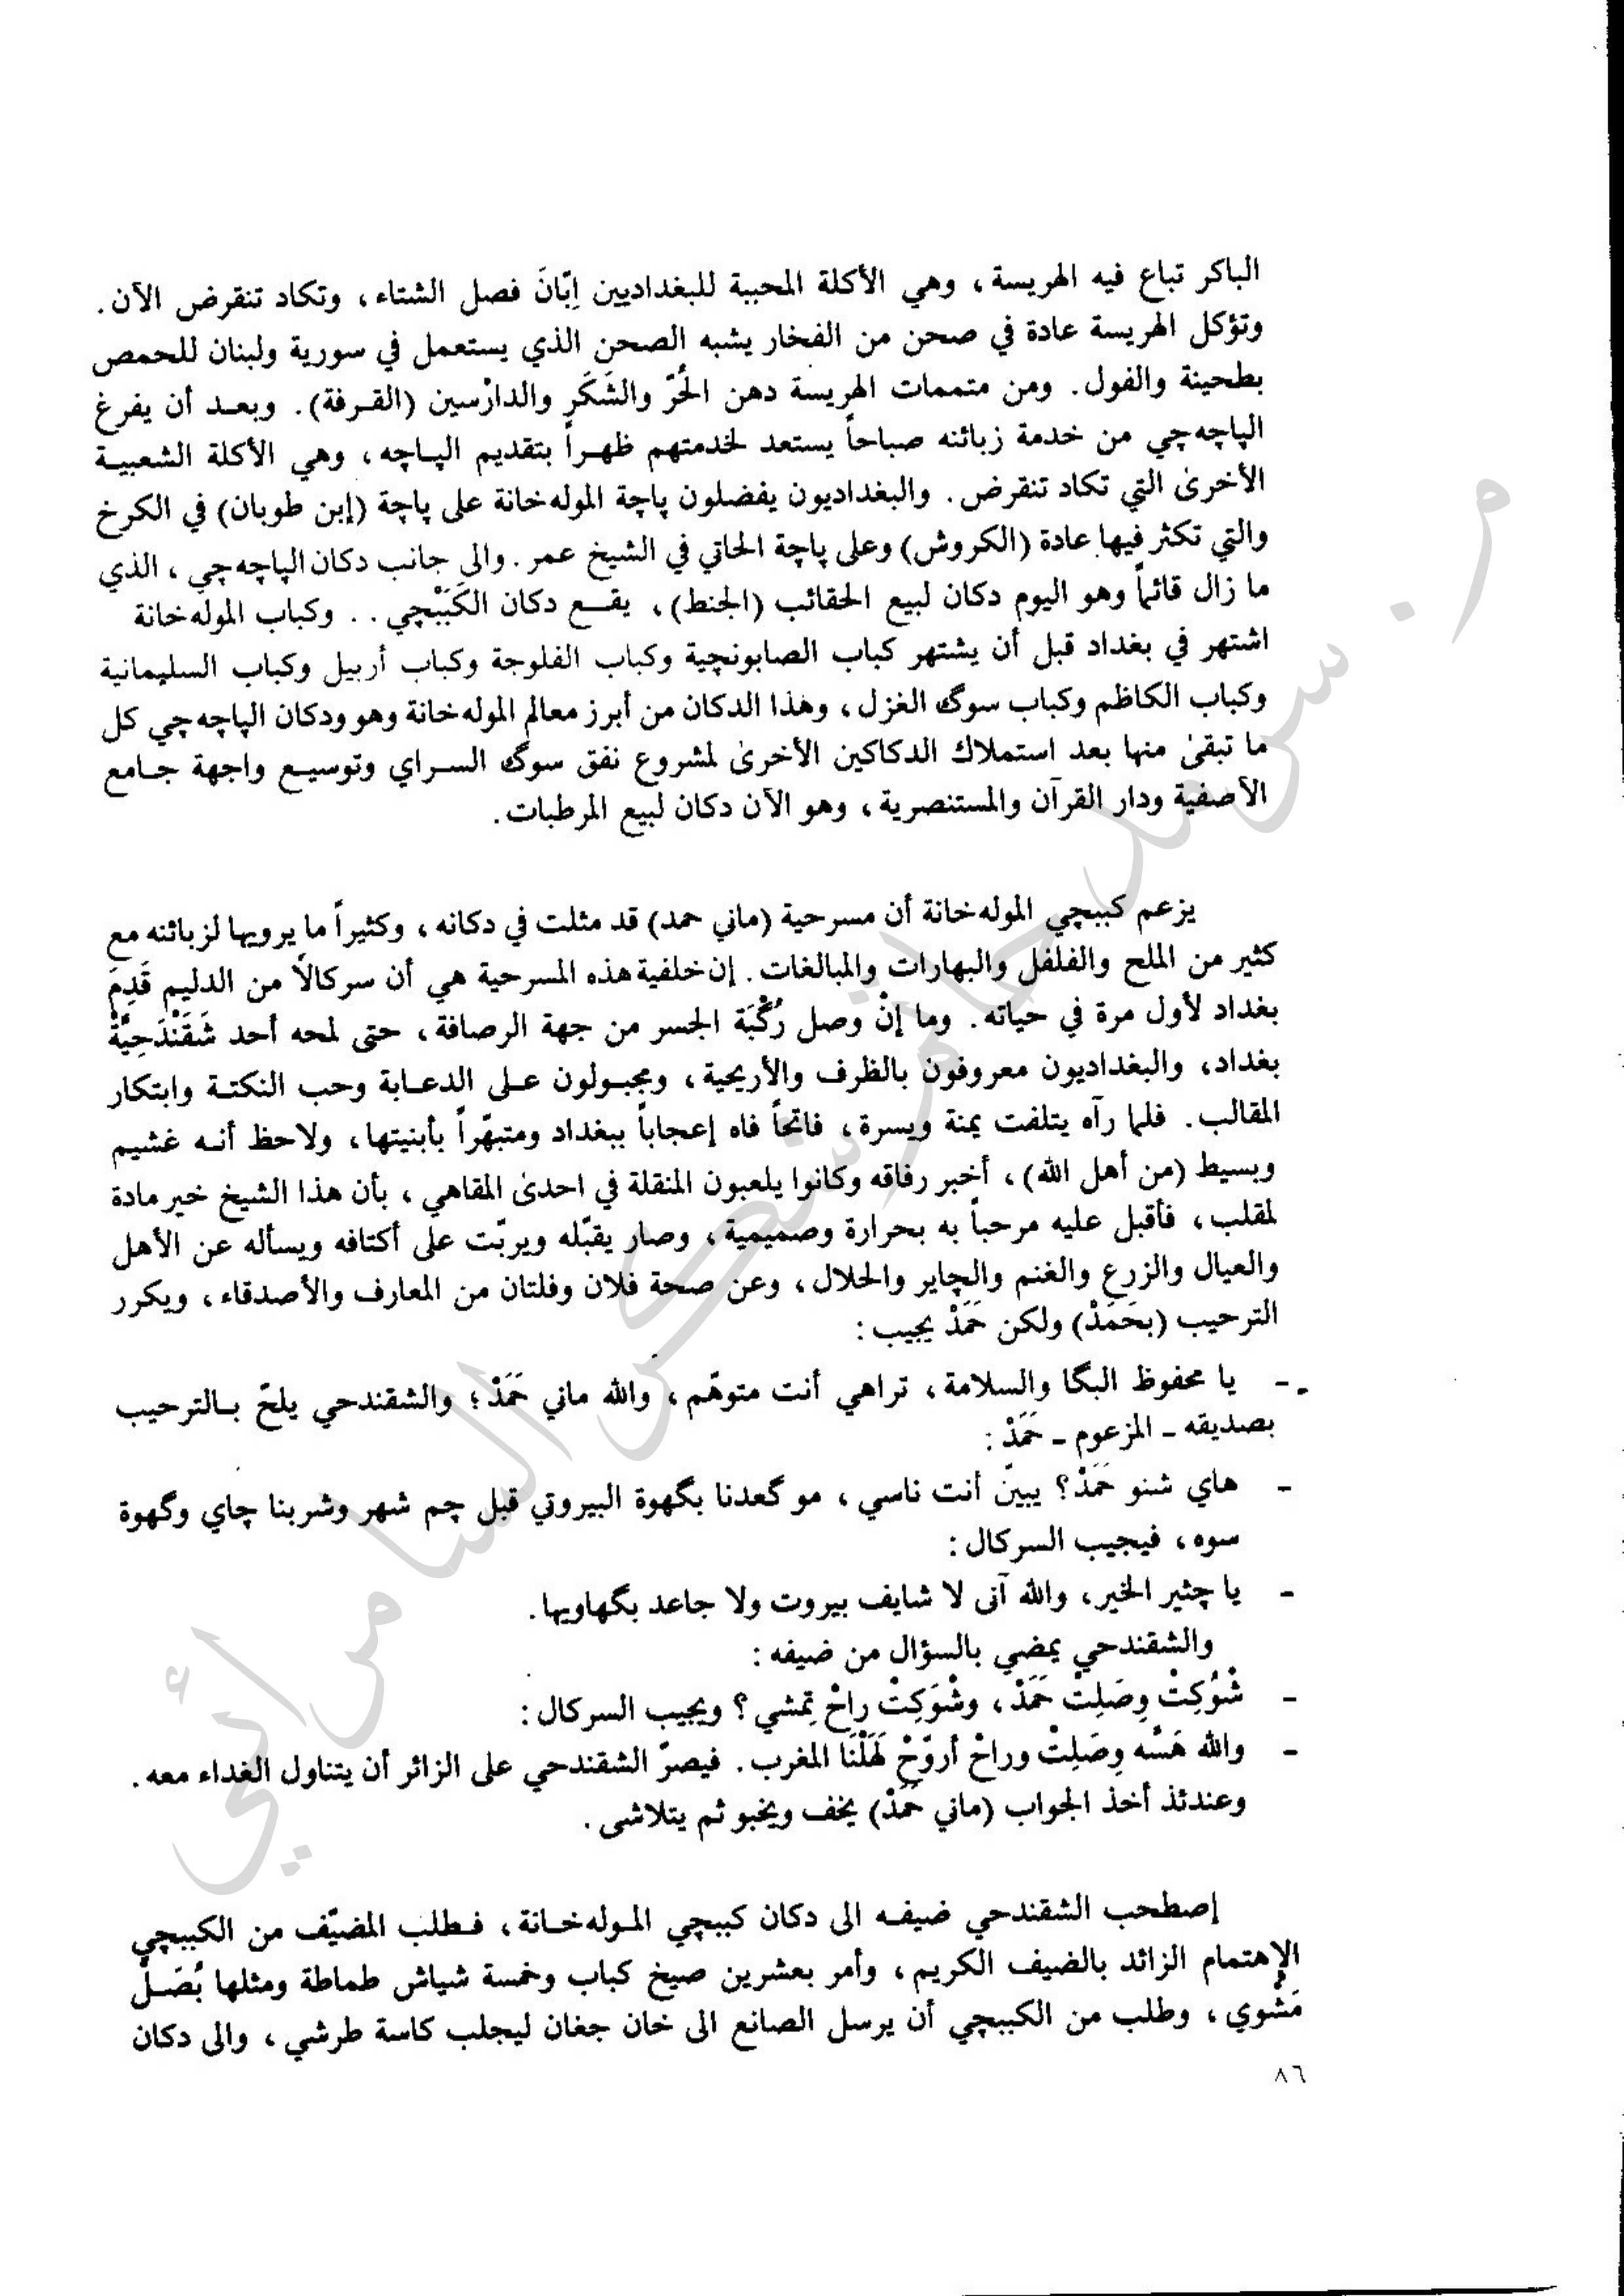 الباكر تباع فيه الهريسة، وهي الأكلة المحببة للبغداديين إبّانَ فصل الشتاء، وتكاد تنقرض الآن.
وتؤكل الهريسة عادة في صحن من الفخار يشبه الصحن الذي يستعمل في سورية ولبنان للحمص
بطحينة والفول. ومن متممات الهريسة دهن الحُرّ والشَكَر والدارْسين (القرفة). وبعد أن يفرغ
الپاچه‌چي من خدمة زبائنه صباحاً يستعد لخدمتهم ظهراً بتقديم الپاچه، وهي الأكلة الشعبية
الأخرىٰ التي تكاد تنقرض. والبغداديون يفضلون پاچة الموله‌خانة على پاچة (إبن طوبان) في الكرخ
والتي تكثر فيها عادة (الكروش) وعلى پاچة الحاتي في الشيخ عمر. والى جانب دكان الپاچه‌چي، الذي
ما زال قائماً وهو اليوم دكان لبيع الحقائب (الجنط)، يقع دكان الكَبَبْچي .. وكباب الموله‌خانة
اشتهر في بغداد قبل أن يشتهر كباب الصابونچية وكباب الفلوجة وكباب أربيل وكباب السليمانية
وكباب الكاظم وكباب سوگ الغزل، وهذا الدكان من أبرز معالم الموله‌خانة وهو ودكان الپاچه‌چي كل
ما تبقىٰ منها بعد استملاك الدكاكين الأخرىٰ لمشروع نفق سوگ السراي وتوسيع واجهة جامع
الآصفية ودار القرآن والمستنصرية، وهو الآن دكان لبيع المرطبات.
يزعم كببچي الموله‌خانة أن مسرحية (ماني حمد) قد مثلت في دكانه، وكثيراً ما يرويها لزبائنه مع
كثير من الملح والفلفل والبهارات والمبالغات. إن خلفية هذه المسرحية هي أن سركالاً من الدليم قَدِمَ
بغداد لأول مرة في حياته. وما إنْ وصل رُكْبَة الجسر من جهة الرصافة، حتى لمحه أحد شَقَنْدَحِيَّةْ
بغداد، والبغداديون معروفون بالظرف والأريحية، ومجبولون على الدعابة وحب النكتة وابتكار
المقالب. فلما رآه يتلفت يمنة ويسرة، فاتحاً فاه إعجاباً ببغداد ومتبهّراً بأبنيتها، ولاحظ أنه غشيم
وبسيط (من أهل الله)، أخبر رفاقه وكانوا يلعبون المنقلة في احدىٰ المقاهي، بأن هذا الشيخ خير مادة
لمقلب، فأقبل عليه مرحباً به بحرارة وصميمية، وصار يقبّله ويربّت على أكتافه ويسأله عن الأهل
والعيال والزرع والغنم والچاير والحلال، وعن صحة فلان وفلتان من المعارف والأصدقاء، ويكرر
الترحيب (بحَمَدْ) ولكن حَمَدْ يجيب:
- يا محفوظ البگا والسلامة، تراهي أنت متوهّم، والله ماني حَمَدْ؛ والشقندحي يلحّ بالترحيب
بصديقه - المزعوم - حَمَدْ:
- هاي شنو حَمَدْ؟ يبيّن أنت ناسي، مو گعدنا بگهوة البيروتي قبل چم شهر وشربنا چاي وگهوة
سوه، فيجيب السركال:
- يا چثير الخير، والله آنى لا شايف بيروت ولا جاعد بگهاويها.
والشقندحي يمضي بالسؤال من ضيفه:
- شْوُكِتْ وِصَلِتْ حَمَدْ، وشْوَكِتْ راحْ تِمشي؟ ويجيب السركال:
- والله هَسَّه وِصَلِتْ وراحْ أروّحْ لَهَلْنَا المغرب. فيصرّ الشقندحي على الزائر أن يتناول الغداء معه.
وعندئذ أخذ الجواب (ماني حَمَدْ) يخف ويخبو ثم يتلاشى.
إصطحب الشقندحي ضيفه الى دكان كببچي الموله‌خانة، فطلب المضيّف من الكببچي
الإهتمام الزائد بالضيف الكريم، وأمر بعشرين صيخ كباب وخمسة شياش طماطة ومثلها بُصَلْ
مَشْوي، وطلب من الكببچي أن يرسل الصانع الى خان جغان ليجلب كاسة طرشي، والى دكان
٨٦
من سرمد حاتم شكر السامرائي